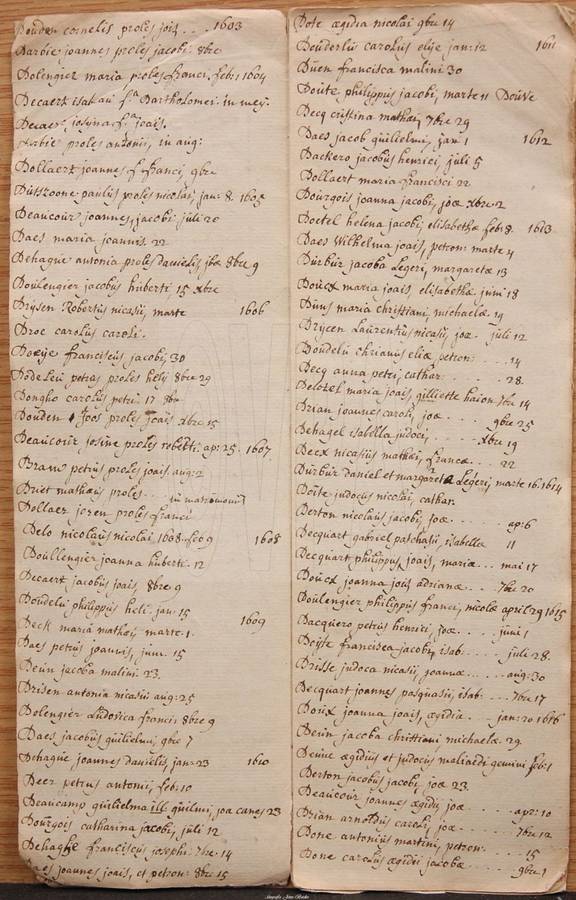 Bouden cornelis proles jois . . . 1603
Barbie joannes proles jacobi 8bre
Bolengier maria proles franci. feb: 1 1604
Becaert isak an fa Bartholomei in mey.
Becaer josyna fa joais.
Barbie proles antonii, in aug:
Bollaert joannes f franci, 9bre
Busschoone paulus proles nicolai, jan: 8. 1605
Beaucour joannes, jacobi juli 20
Baes maria joannis. 22
Behague antonia proles danielis, 8bre 9
Boulengier jacobus huberti 15 xbre
Brysen Robertus nicasii, marte 1606
Broc carolus caroli.
Boeye franciscus jacobi, 30
Bodeleu petrus proles helij 8bre 29
Bongho carolus petri 17 8br
Bouden Joos proles joais xbre 15
Beaucour josine proles roberti, apr: 25. 1607
Braw petrus proles joais. aug: 2
Briet mathaus proles . . . in matrimonio
Bollaer jozen proles franci
Belo nicolaus nicolai, 1608. feb 9 1608
Boullengier joanna huberti. 12
Becaert jacobus joais, 8bre 9
Boudelu philippus heli. jan: 15
Beck maria mathei, marte: 1. 1609
Baes petrus joannis, juni. 15
Beun jacoba malini. 23.
Brisen antonia nicasii aug: 25
Bolengier Ludovica francis 8bre 9
Baes jacobus guilielmi, 9bre 7
Behague joannes danielis, jan: 23 1610
Beer petrus antonii, feb: 10
Beaucamp guilielma guilmi, joa canes 23
Bourgois catharina jacobi, juli 12
Behaghe franciscus josephi 7bre 14
Baes joannes joais, et petron: 8bre 15
Bote ægidia nicolai 9br 14
Beuderlu carolus elije jan: 12 1611
Buen francisca malini 30
Boute philippus jacobi, marte 11 Bouve
Becq cristina mathæi, 7bre 29
Baes jacob guilielmi, jan 1 1612
Backero jacobus henrici, juli 5
Bollaert maria francisci 22
Bourgois joanna jacobi, joæ xbre 2
Boetel helena jacobi, elisabethæ feb: 8. 1613
Baes Wilhelma joais, petron: marte 4
Burbur jacoba Legeri, margaretæ 13
Boucx maria joais, elisabethæ juni 18
Buns maria christiani, michaelæ. 19
Brycen Laurentius nicasii, joæ . juli 12
Boudelu chrianus eliæ, petron: . . 14
Becq anna petri, cathar. . . . 28.
Belozel maria joais, gilliette haion 7br 14
Brian joannes caroli, joæ . . . 9bre 25
Behagel isabella judoci, . . . xbre 19
Becx nicasius mathæi, francæ . . . 22
Burbur daniel et margareta Legeri, marte 16. 1614
Boite judocus nicolai, cathar.
Berton nicolaus jacobi, joæ . . . ap: 6
Becquart gabriel paschasii, isabella 11
Becquart philippus joais, mariæ . . . mai 17
Boucx joanna joais adrianæ . . 7bre 20
Boulengier philippus franci, nicolæ april 29 1615
Bacquero petrus henrici, joæ . . . juni 1
Boijte francisca jacobi, isab: . . . juli 28.
Brisse judoca nicasii, joannæ . . . aug: 30
Becquart joannes pasquasii, isab: . . . 7bre 17
Borix joanna joais, ægidia . . jan: 20 1616
Beun jacoba christiani, michaelæ. 29
Beunc ægidius et judocus maliardi gemini feb: 1
Berton jacobus jacobi, joæ 23.
Beaucour joannes ægidii, joæ . . . apr: 10
Brian arnoldus caroli, joæ . . . 7bre 12
Bone antonius martini, petron: . . . 15
Bone carolus ægidii jacobæ . . . 9bre 1